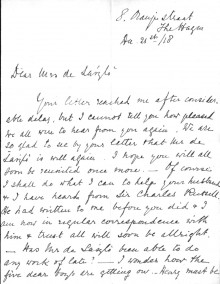 8. Oranje straat
The Hague
Dec 21st/18
Dear Mrs de László
Your letter reached me after consider
able delay, but I cannot tell you how pleased
we all were to hear from you again. We are
so glad to see by your letter that Mr de
László is well again. I hope you will all
soon be reunited once more. — Of course
I shall do what I can to help your husband
& I have heard from Sir Charles Russell.
He had written to me before you did & I
am now in regular correspondence with
him & trust all will soon be allright.
— Has Mr de László been able to do
any work of late? — I wonder how the
five dear boys are getting on. Henry must be